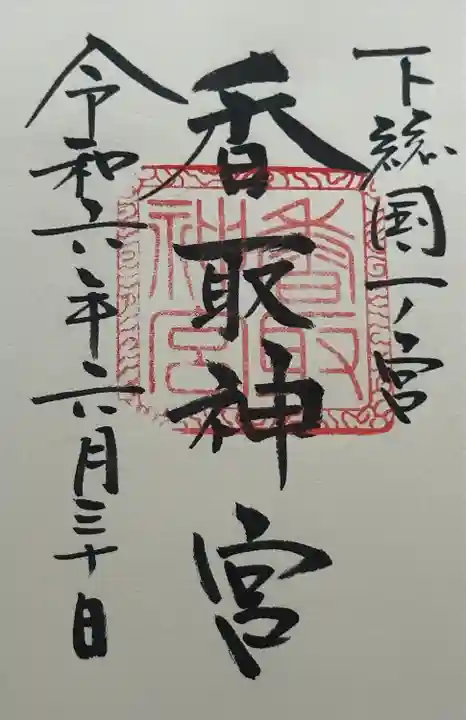 下総国一ノ宮
香取神宮
香取
神宮
令和六年六月三十日